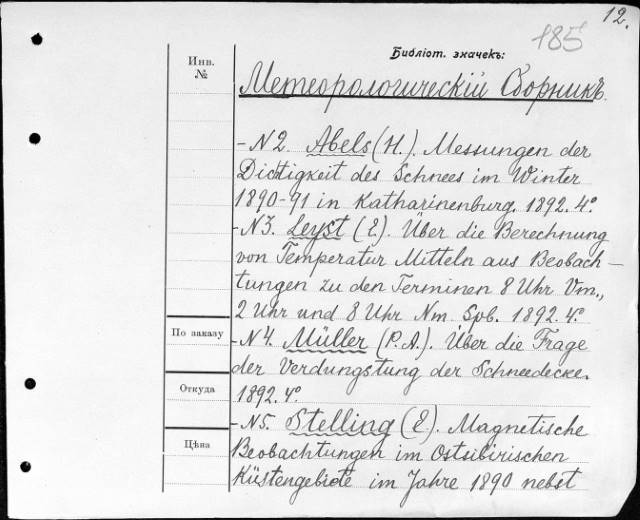 12.
185
Библіот. значекъ:
Инв.
№
Метеорологическій Сборникъ.
- N2. Abels (H.). Messungen der
Dichtigkeit des Schnees im Winter
1890-91 in Katharinenburg. 1892. 4°.
- N3. Leyst (E). Über die Berechnung
von Temperatur Mitteln aus Beobach-
tungen zu den Terminen 8 Uhr Vm.,
2 Uhr und 8 Uhr Nm. Spb. 1892. 4°.
По заказу
- N4. Müller (P.A.). Über die Frage
der Verdungstung der Schneedecke.
Откуда
1892. 4°.
- N5. Stelling (E). Magnetische
Цѣна
Beobachtungen im Ostsibirischen
Küstengebiete im Jahre 1890 nebst